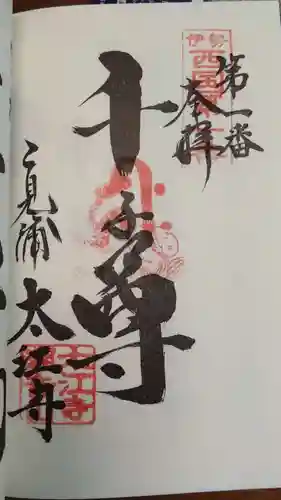 伊勢
西国第一
第一番
奉拝
千手尊
二見浦 太江寺
太江寺